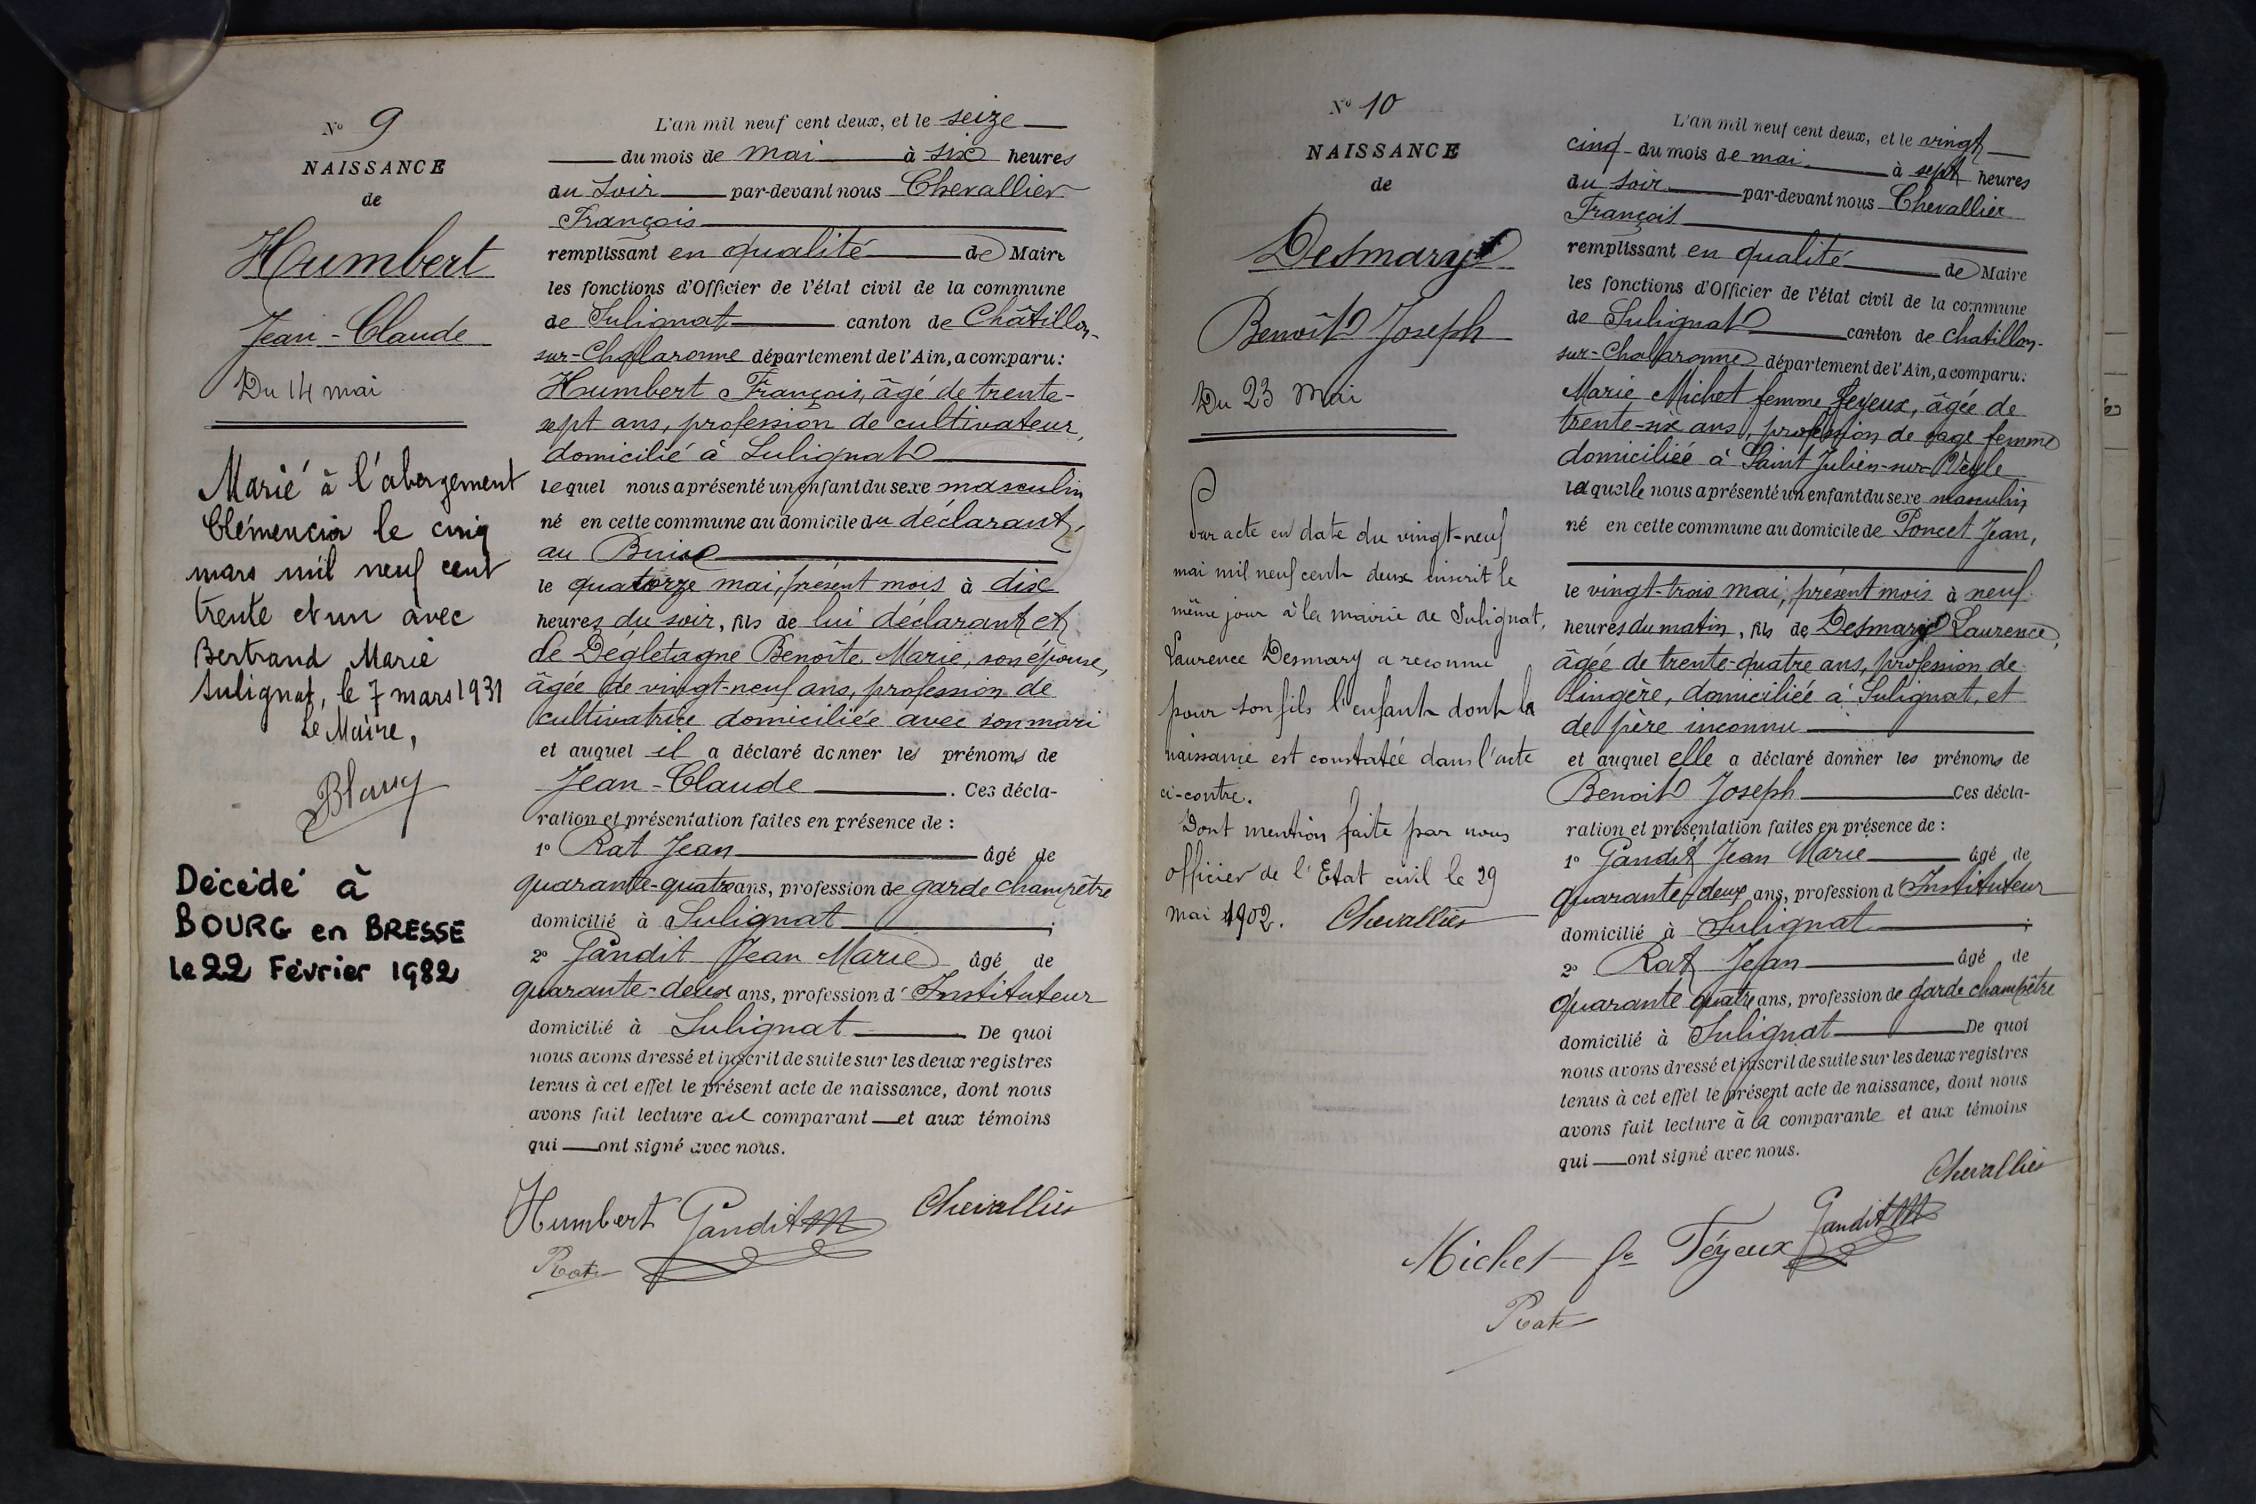 N° 9
NAISSANCE
de
Humbert
Jean-Claude
Du 14 mai
Marié à l'abergement
Clémencia le cinq
mars mil neuf cent
trente et un avec
Bertrand Marie
Sulignat, le 7 mars 1931
Le Maire,
Décédé à
BOURG en BRESSE
le 22 Février 1982
L'an mil neuf cent deux, et le seize
du mois de mai à six heures
du soir par-devant nous Chevallier
François
remplissant en qualité de Maire
les fonctions d'Officier de l'état civil de la commune
de Sulignat canton de Châtillon-
sur-Chalaronne département de l'Ain, a comparu:
Humbert François, âgé de trente-
sept ans, profession de cultivateur,
domicilié à Sulignat
lequel nous a présenté un enfant du sexe masculin
né en cette commune au domicile du déclarant,
au Buisc
le quatorze mai, présent mois à dix
heures du soir, fils de lui déclarant et
de Dégletagne Benoîte Marie, son épouse,
âgée de vingt-neuf ans, profession de
cultivatrice domiciliée avec son mari
et auquel il a déclaré donner les prénoms de
Jean-Claude . Ces décla-
ration et présentation faites en présence de :
1° Rat Jean âgé de
quarante-quatre ans, profession de garde champêtre
domicilié à Sulignat ;
2° Gandit Jean Marie âgé de
quarante-deux ans, profession d'Instituteur
domicilié à Sulignat De quoi
nous avons dressé et inscrit de suite sur les deux registres
tenus à cet effet le présent acte de naissance, dont nous
avons fait lecture au comparant et aux témoins
qui ont signé avec nous.
Humbert Gandit JM Chevallier
Rat
N° 10
NAISSANCE
de
Desmary
Benoît Joseph
Du 23 Mai
Par acte en date du vingt-neuf
mai mil neuf cent deux inscrit le
même jour à la mairie de Sulignat,
Laurence Desmary a reconnu
pour son fils l'enfant dont la
naissance est constatée dans l'acte
ci-contre.
Dont mention faite par nous
officier de l'Etat civil le 29
mai 1902. Chevallier
L'an mil neuf cent deux, et le vingt
cinq du mois de mai à sept heures
du soir par-devant nous Chevallier
François
remplissant en qualité de Maire
les fonctions d'Officier de l'état civil de la commune
de Sulignat canton de Chatillon-
sur-Chalaronne département de l'Ain, a comparu:
Marie Michet femme Feyeux, âgée de
trente-six ans, profession de sage femme
domiciliée à Saint Julien-sur-Veyle
laquelle nous a présenté un enfant du sexe masculin
né en cette commune au domicile de Poncet Jean,
le vingt-trois mai, présent mois à neuf
heures du matin, fils de Desmary Laurence,
âgée de trente-quatre ans, profession de
lingère, domiciliée à Sulignat, et
de père inconnu
et auquel elle a déclaré donner les prénoms de
Benoit Joseph Ces décla-
ration et présentation faites en présence de :
1° Gandit Jean Marie âgé de
quarante-deux ans, profession d'Instituteur
domicilié à Sulignat ;
2° Rat Jean âgé de
quarante quatre ans, profession de garde champêtre
domicilié à Sulignat De quoi
nous avons dressé et inscrit de suite sur les deux registres
tenus à cet effet le présent acte de naissance, dont nous
avons fait lecture à la comparante et aux témoins
qui ont signé avec nous.
Chevallier
Michet fe Féyeux Gandit JM
Rat